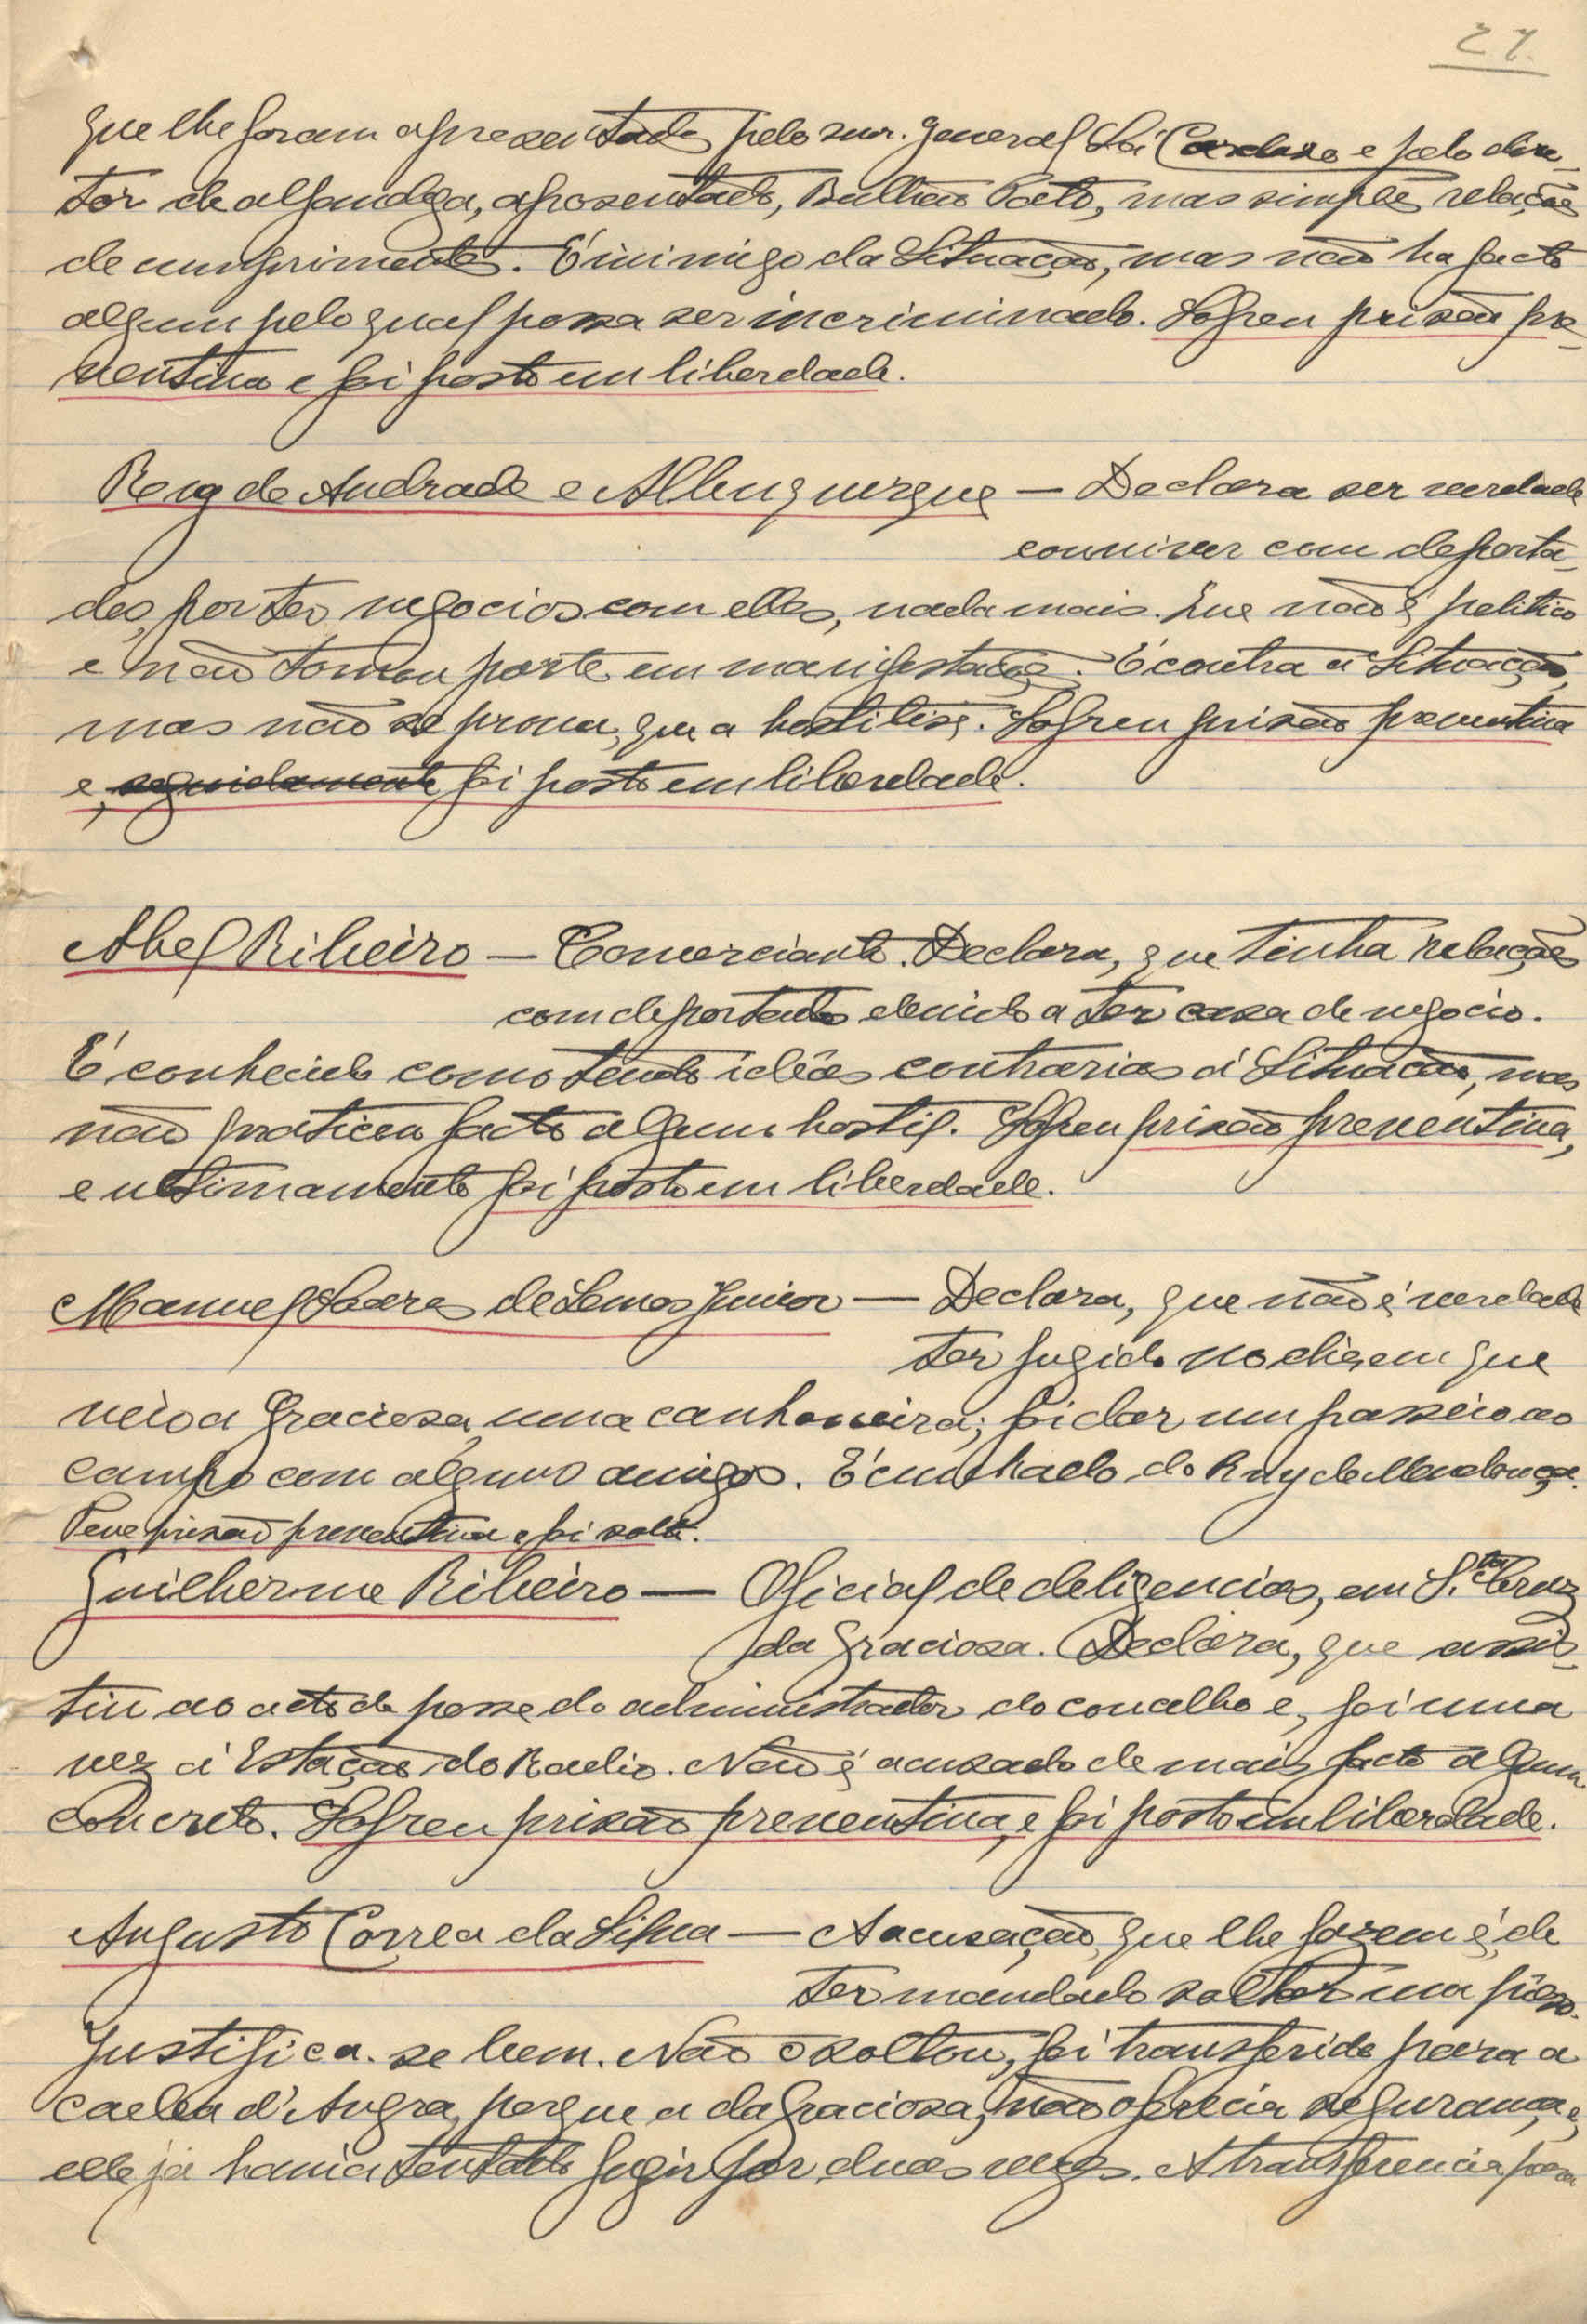 27.
que lhe foram apresentados pelo snr. general Sá Cardoso e pelo dire-
tor de alfandega, aposentado, Bulhão Pato, mas simples relações
de cumprimentos. É inimigo da Situação, mas não ha facto
algum pelo qual possa ser incriminado. Sofreu prisão pre-
ventiva e foi posto em liberdade.
Ruy de Andrade e Albuquerque — Declara ser verdade
conviver com deporta-
dos, por ter negocios com elles, nada mais. Que não é politico
e não tomou parte em manifestações. É contra a Situação,
mas não se prova, que a hostilise. Sofreu prisão preventiva
e, seguidamente foi posto em liberdade.
Abel Ribeiro — Comerciante. Declara, que tinha relações
com deportados devido a ter casa de negocio.
É conhecido como tendo idêas contrarias á Situação, mas
não praticou facto algum hostil. Sofreu prisão preventiva,
e ultimamente foi posto em liberdade.
Manuel Soares de Lemos Junior — Declara, que não é verdade
ter fugido no dia, em que
veio a Graciosa, uma canhoneira; foi dar um passeio ao
campo com alguns amigos. É cunhado do Ruy de Mendonça.
Teve prisão preventiva e foi solto.
Guilherme Ribeiro — Oficial de deligencias, em S.ta Cruz
da Graciosa. Declara, que assis-
tiu ao acto de posse do administrador do concelho e, foi uma
vez á Estação do Radio. Não é acusado de mais facto algum
concreto. Sofreu prisão preventiva, e foi posto em liberdade.
Augusto Corrêa da Silva — A acusação, que lhe fazem é, de
ter mandado soltar um prêso.
Justifica-se bem. Não o soltou, foi transferido para a
cadea d'Angra, porque a da Graciosa, não oferecia segurança e,
elle já havia tentado fugir por duas vezes. A transferencia para